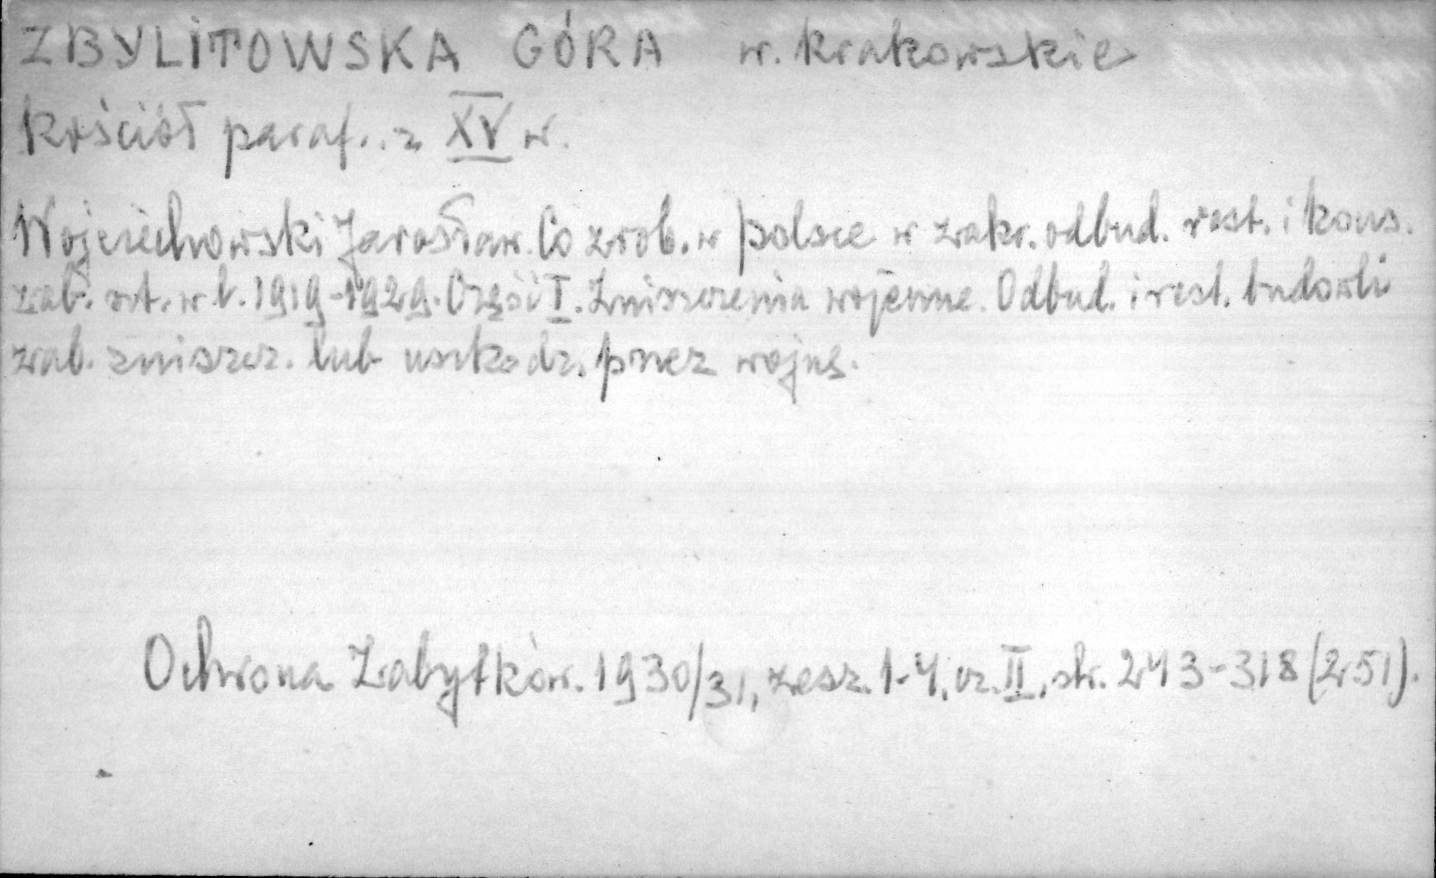 ZBYLITOWSKA GÓRA w. krakowskie
Kościół paraf. z XV w.
Wojciechowski Jarosław. Co zrob. w Polsce w zakr. odbud. rest. i kons.
zab. szt. w l. 1919-1929. Część I. Zniszczenia wojenne. Odbud. i rest. budowli
zab. zniszcz. lub uszkodz. przez wojnę.
Ochrona Zabytków. 1930/31, zesz. 1-4, cz. II, str. 243-318 (251).